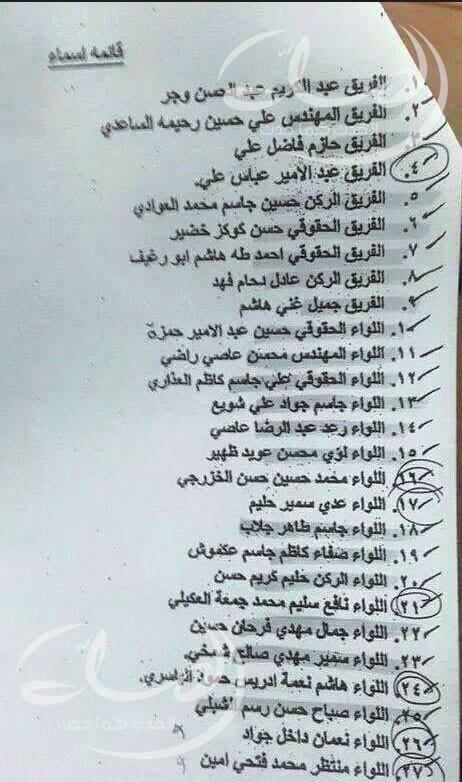 قائمة اسماء
١. الفريق عبد الكريم عبد الحسن وجر
٢. الفريق المهندس علي حسين رحيمه الساعدي
٣. الفريق حازم فاضل علي
٤. الفريق عبد الامير عباس علي.
٥. الفريق الركن حسين جاسم محمد العوادي
٦. الفريق الحقوقي حسن كوكز خضير
٧. الفريق الحقوقي احمد طه هاشم ابو رغيف
٨. الفريق الركن عادل دحام فهد
٩. الفريق جميل غني هاشم
١٠. اللواء الحقوقي حسين عبد الامير حمزة
١١. اللواء المهندس محسن عاصي راضي
١٢. اللواء الحقوقي علي جاسم كاظم العذاري
١٣. اللواء جاسم جواد علي شويع
١٤. اللواء رعد عبد الرضا عاصي
١٥. اللواء لؤي محسن عويد ظهير
١٦. اللواء محمد حسين حسن الخزرجي
١٧. اللواء عدي سمير حليم
١٨. اللواء جاسم طاهر جلاب
١٩. اللواء صفاء كاظم جاسم عكموش
٢٠. اللواء الركن حليم كريم حسن
٢١. اللواء نافع سليم محمد جمعة العكيلي
٢٢. اللواء جمال مهدي فرحان حسين
٢٣. اللواء سمير مهدي صالح شمخي.
٢٤. اللواء هاشم نعمة ادريس حمود الياسري.
٢٥. اللواء صباح حسن رسم الشبلي
٢٦. اللواء نعمان داخل جواد
٢٧. اللواء منتظر محمد فتحي امين